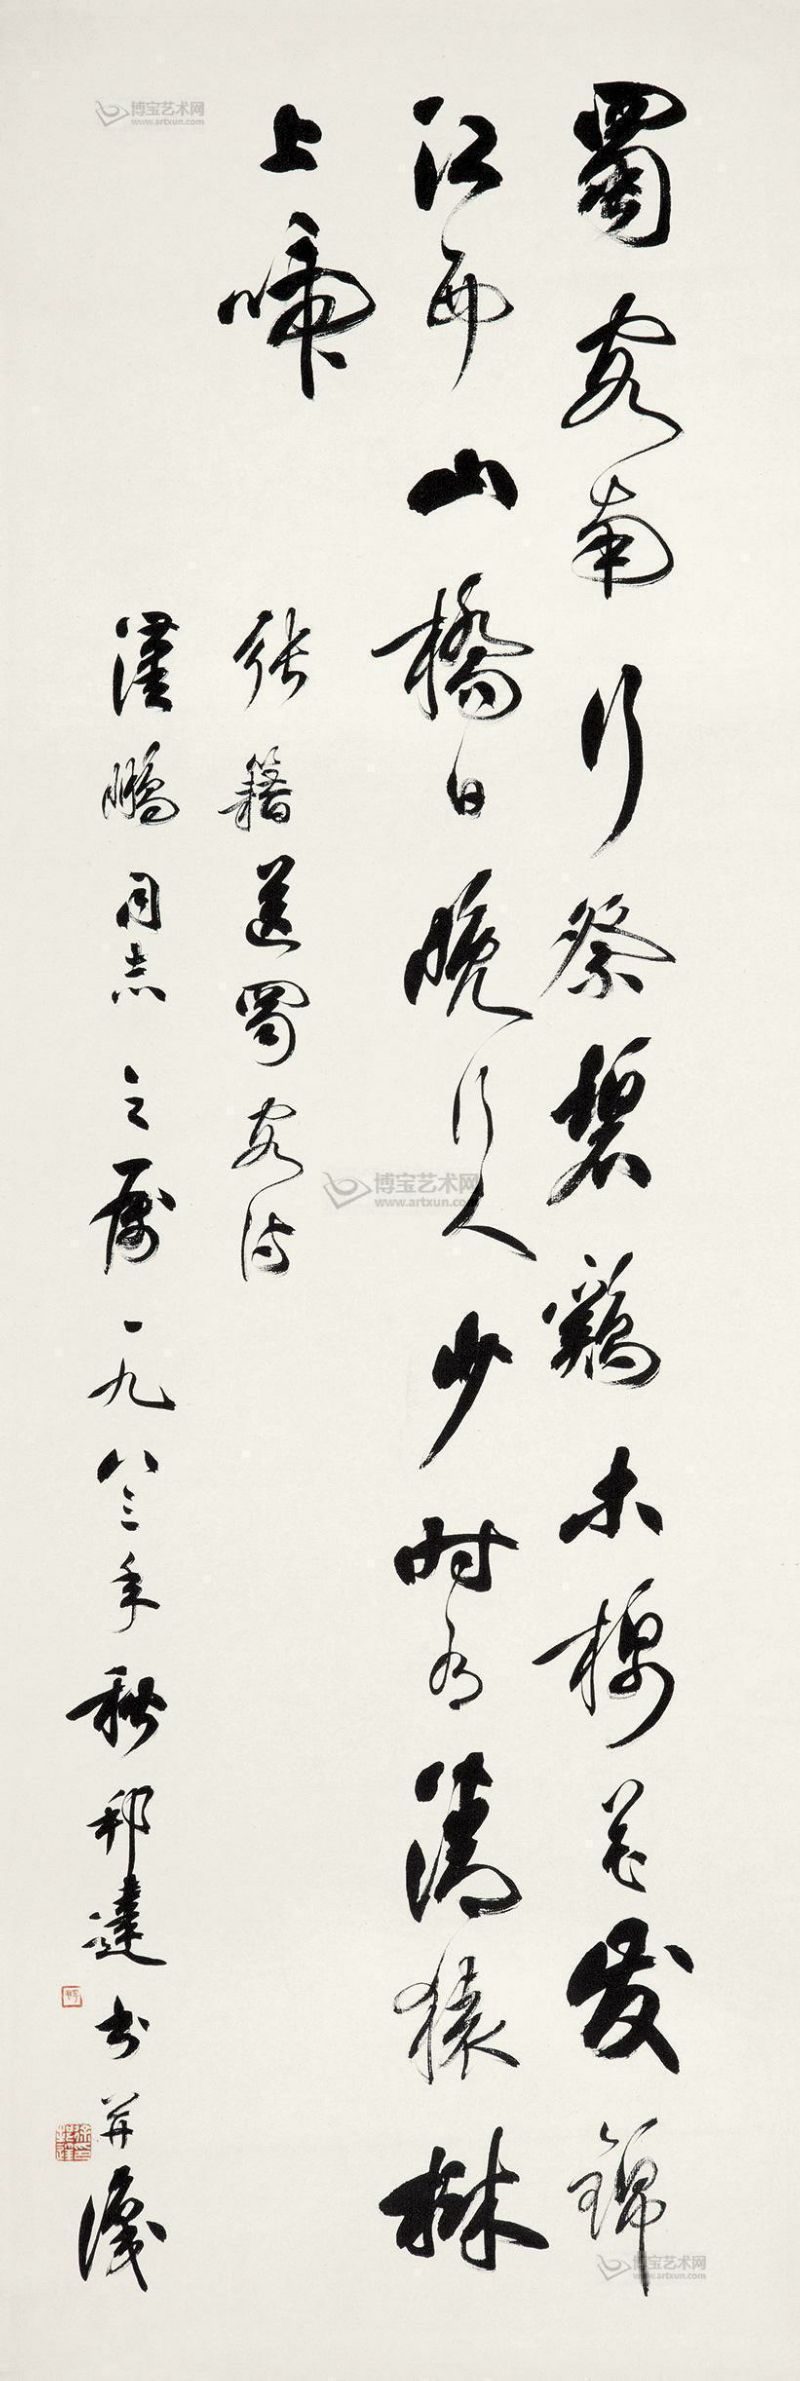 蜀客南行祭碧鷄木棉花发锦
江西山橋日晚行人少时有清猿樹
上啼
张籍送蜀客诗
漢鵬同志之属一九八三年秋邦達书并識
博宝艺术网
www.artxun.com
博宝艺术网
www.artxun.com
博宝艺术网
www.artxun.com